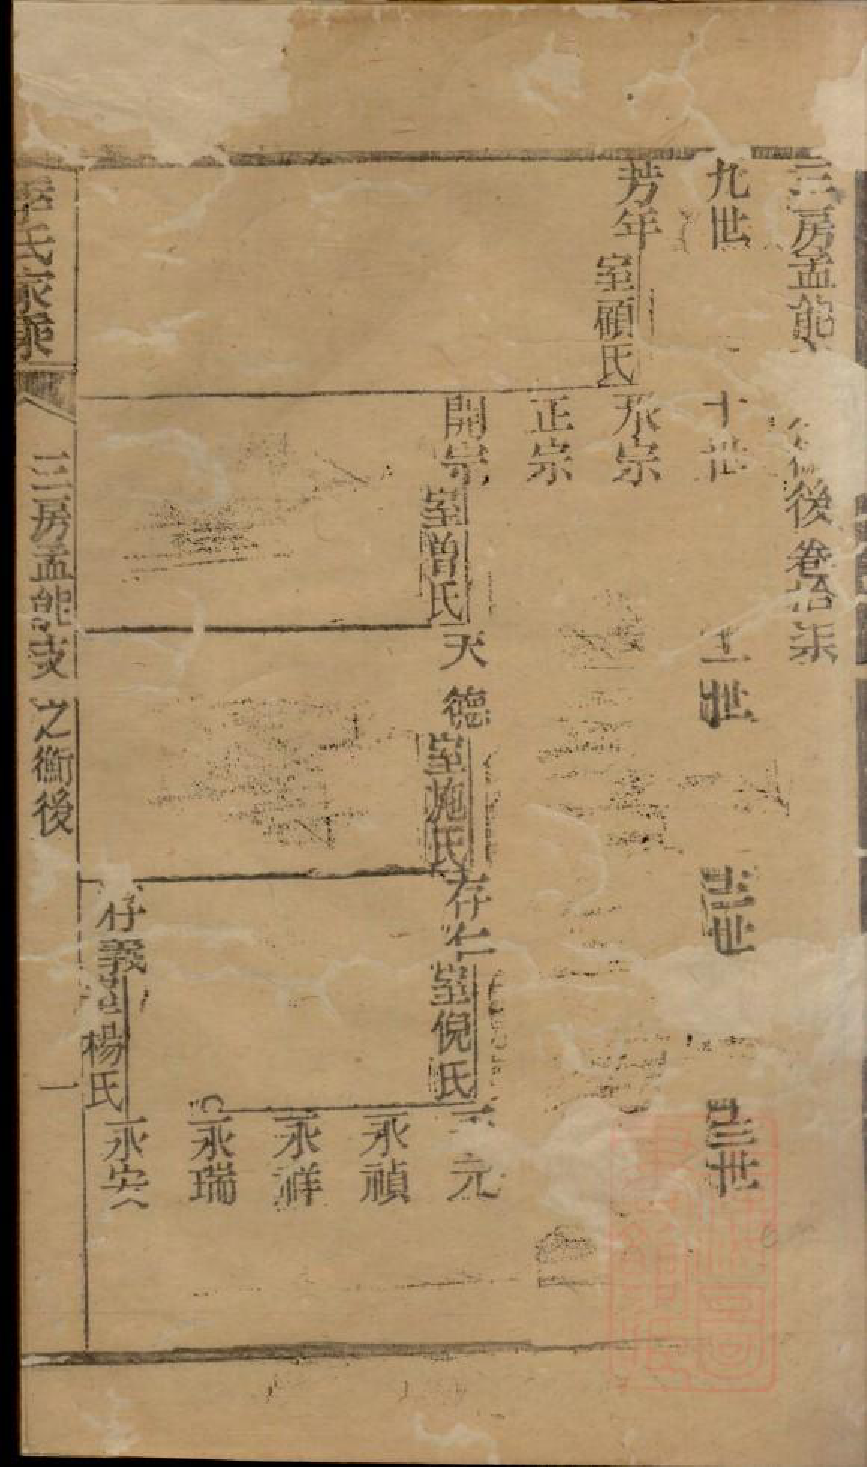 三房孟能 後卷拾柒
九世 十世 十一世 十二世 十三世
芳年 室顧氏
承宗
正宗
開宗 室曾氏
天德 室施氏
存仁 室倪氏
元
永禎
永祥
永瑞
存義 室楊氏
永安
李氏家乘 三房孟能支之衡後 一